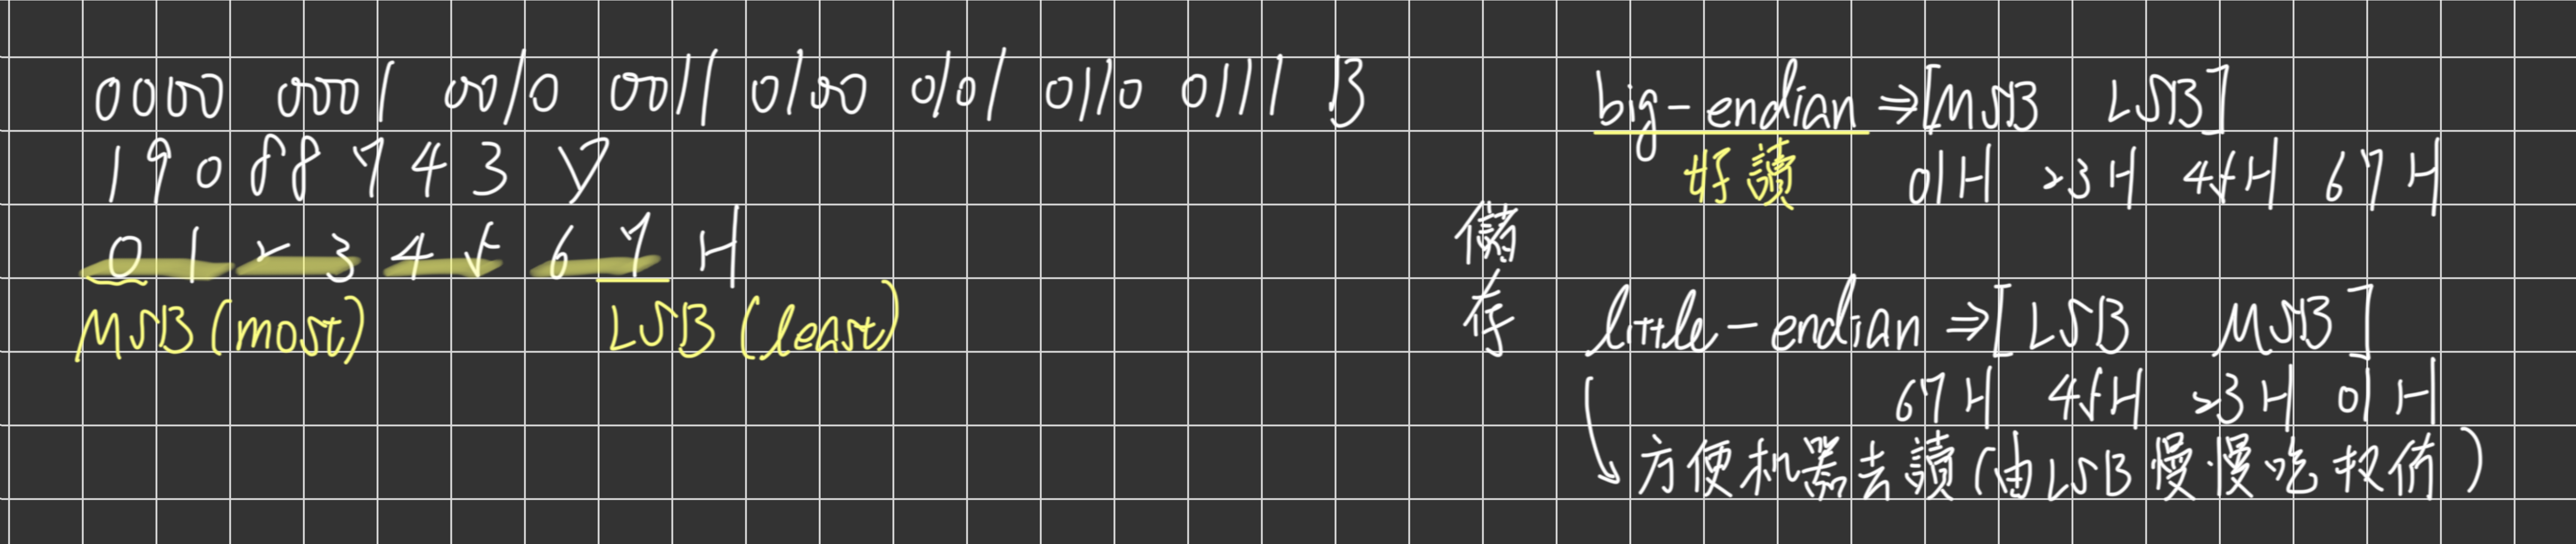 0000 0001 0010 0011 0100 0101 0110 0111 B
19088743
01234567H
MSB (most) LSB (least)
儲存
big-endian ⇒ [MSB LSB]
好讀 01H 23H 45H 67H
little-endian ⇒ [LSB MSB]
67H 45H 23H 01H
方便机器去讀(由LSB慢慢吃)